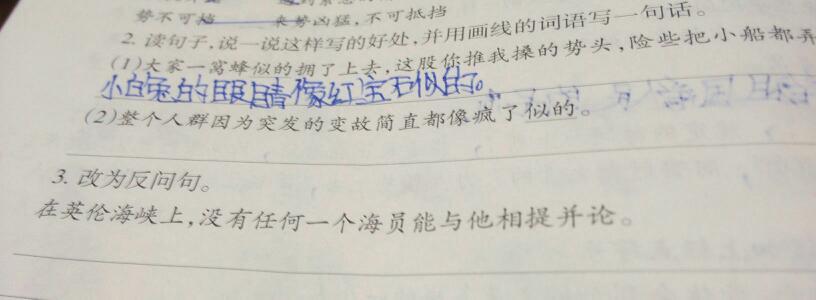 势不可挡 来势凶猛,不可抵挡
2. 读句子,说一说这样写的好处,并用画线的词语写一句话。
(1)大家一窝蜂似的拥了上去,这股你推我搡的势头,险些把小船都弄
小白兔的眼睛像红宝石似的。
(2)整个人群因为突发的变故简直都像疯了似的。
3. 改为反问句。
在英伦海峡上,没有任何一个海员能与他相提并论。